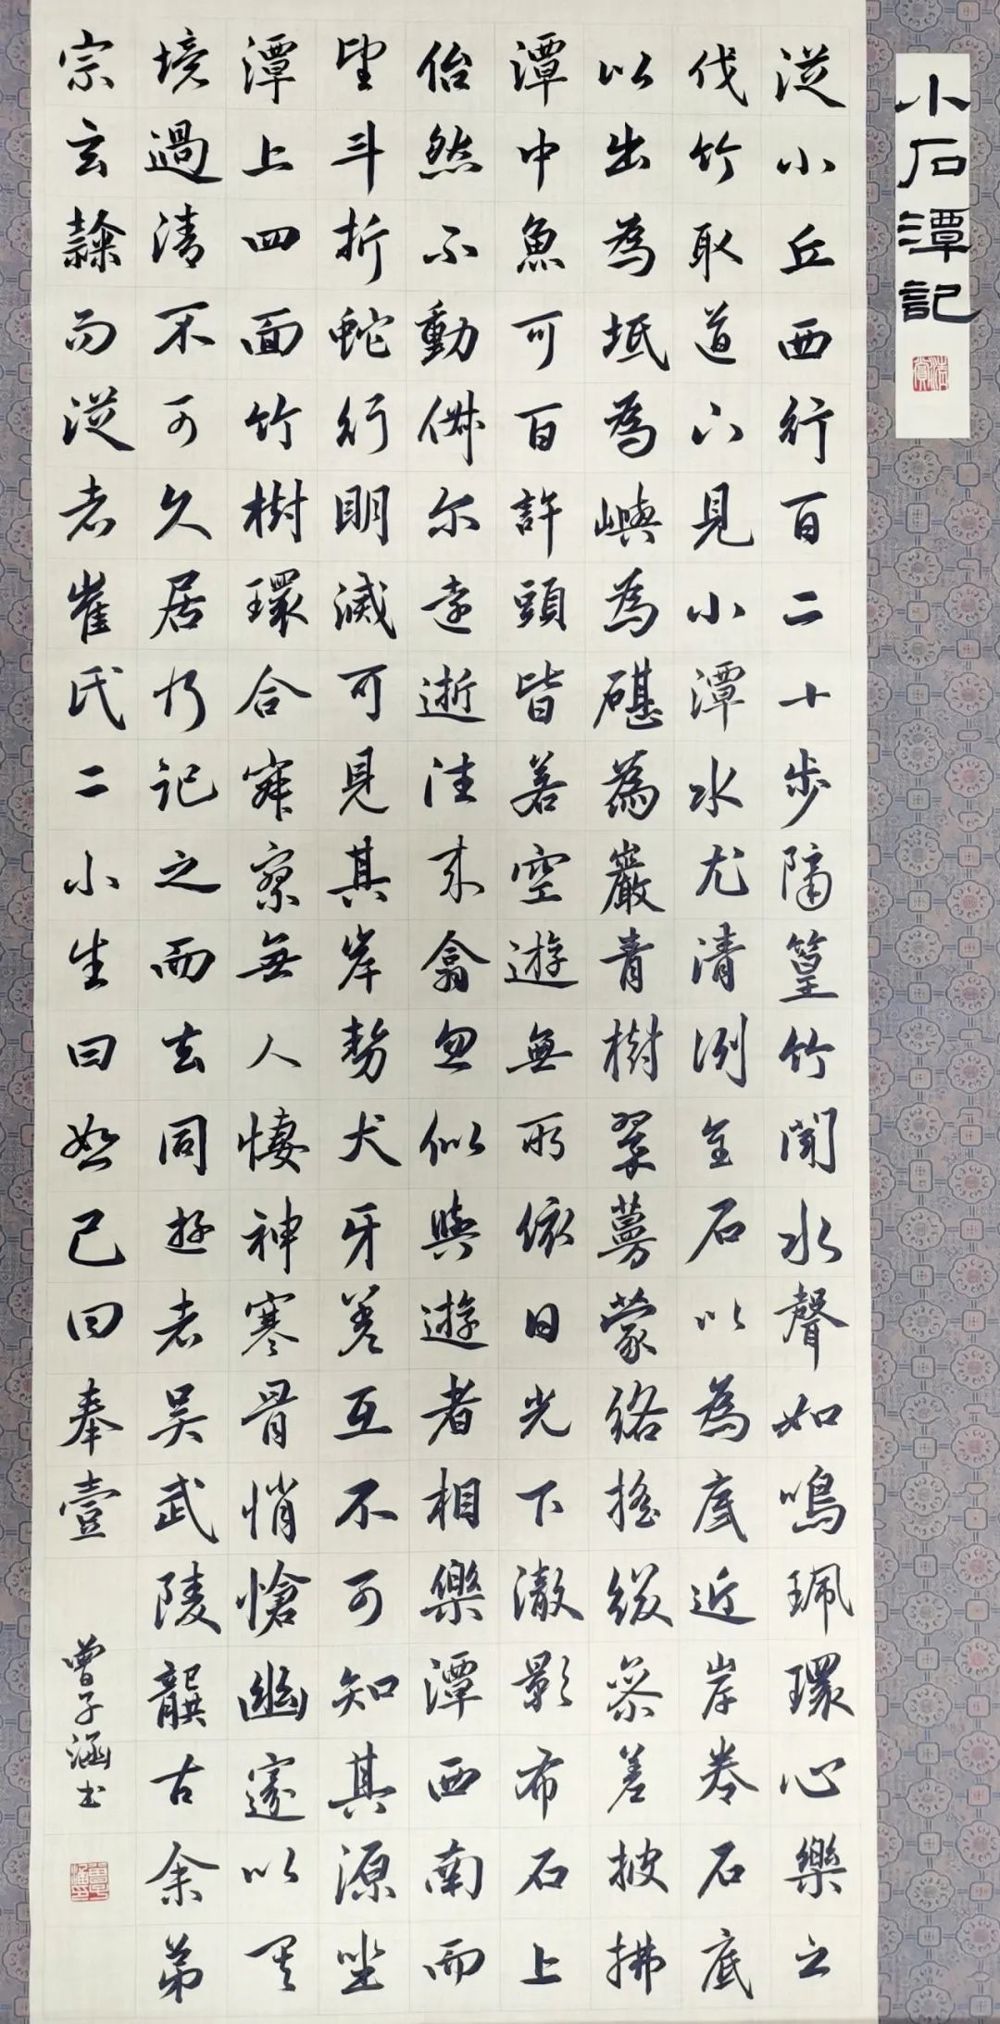 小石潭記
從小丘西行百二十步隔篁竹聞水聲如鳴珮環心樂之
伐竹取道下見小潭水尤清洌全石以為底近岸卷石底
以出為坻為嶼為碪為巖青樹翠蔓蒙絡搖綴參差披拂
潭中魚可百許頭皆若空遊無所依日光下澈影布石上
佁然不動俶尔遠逝往來翕忽似與遊者相樂潭西南而
望斗折蛇行明滅可見其岸勢犬牙差互不可知其源坐
潭上四面竹樹環合寂寥無人悽神寒骨悄愴幽邃以其
境過清不可久居乃記之而去同遊者吳武陵龔古余弟
宗玄隸而從者崔氏二小生曰恕己曰奉壹
曾子涵书